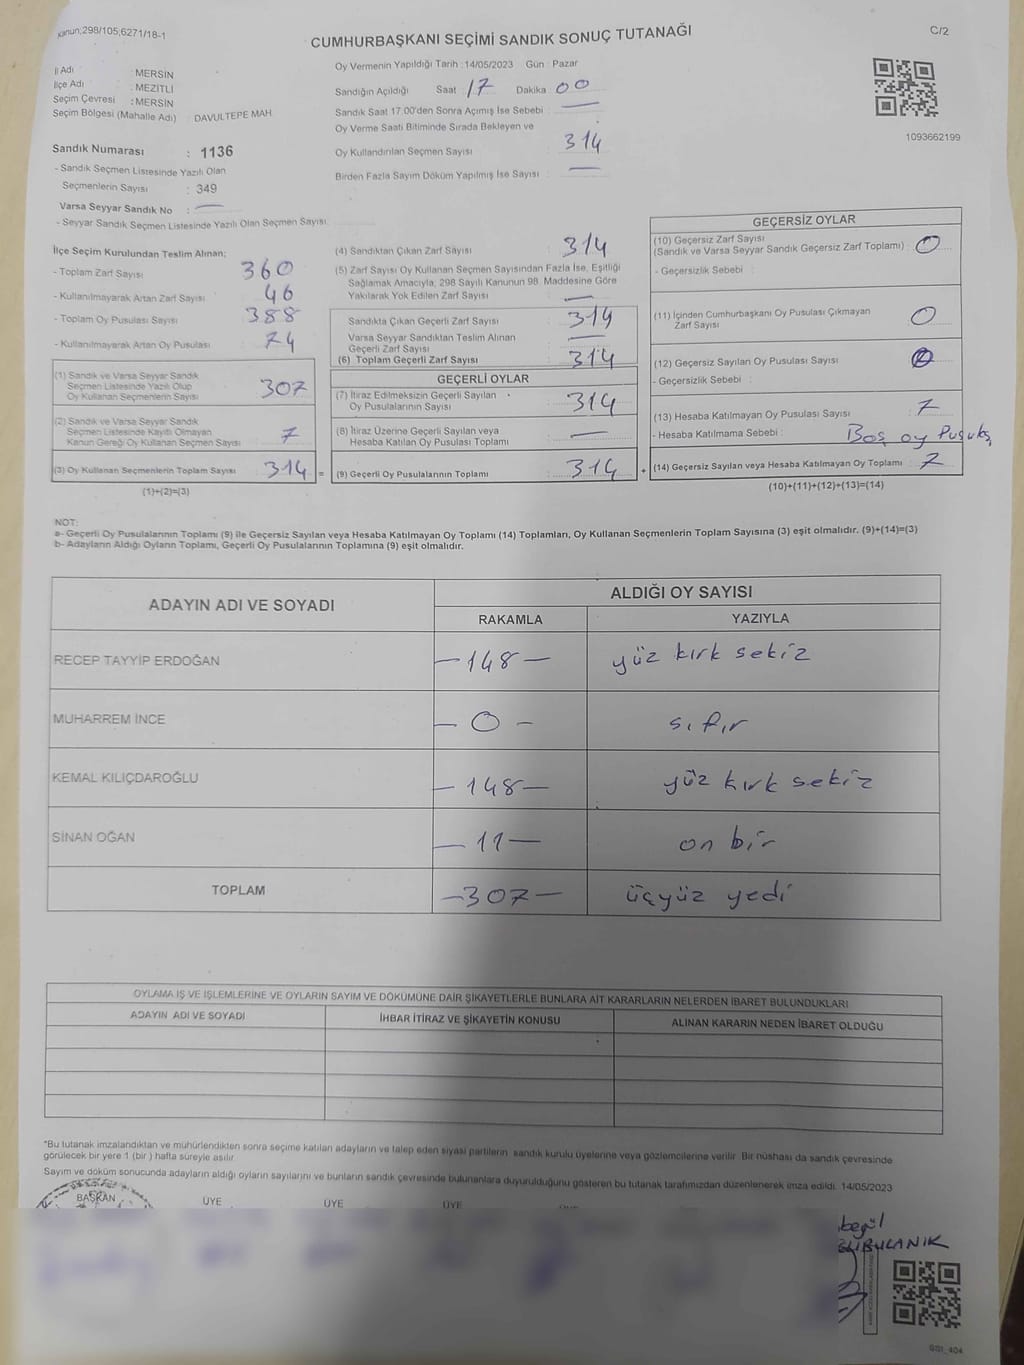 Kanun;298/105;6271/18-1
C/2
CUMHURBAŞKANI SEÇİMİ SANDIK SONUÇ TUTANAĞI
İl Adı : MERSİN
İlçe Adı : MEZİTLİ
Seçim Çevresi : MERSİN
Seçim Bölgesi (Mahalle Adı) : DAVULTEPE MAH.
Sandık Numarası : 1136
- Sandık Seçmen Listesinde Yazılı Olan
Seçmenlerin Sayısı : 349
Varsa Seyyar Sandık No : —
- Seyyar Sandık Seçmen Listesinde Yazılı Olan Seçmen Sayısı:
Oy Vermenin Yapıldığı Tarih :14/05/2023 Gün : Pazar
Sandığın Açıldığı Saat 17 Dakika 00
Sandık Saat 17.00'den Sonra Açımış İse Sebebi : —
Oy Verme Saati Bitiminde Sırada Bekleyen ve
Oy Kullandırılan Seçmen Sayısı : 314
Birden Fazla Sayım Döküm Yapılmış İse Sayısı : —
1093662199
İlçe Seçim Kurulundan Teslim Alınan;
- Toplam Zarf Sayısı : 360
- Kullanılmayarak Artan Zarf Sayısı : 46
- Toplam Oy Pusulası Sayısı : 388
- Kullanılmayarak Artan Oy Pusulası : 74
(1) Sandık ve Varsa Seyyar Sandık
Seçmen Listesinde Yazılı Olup
Oy Kullanan Seçmenlerin Sayısı : 307
(2) Sandık ve Varsa Seyyar Sandık
Seçmen Listesinde Kayıtlı Olmayan
Kanun Gereği Oy Kullanan Seçmen Sayısı : 7
(3) Oy Kullanan Seçmenlerin Toplam Sayısı : 314 =
(1)+(2)=(3)
(4) Sandıktan Çıkan Zarf Sayısı : 314
(5) Zarf Sayısı Oy Kullanan Seçmen Sayısından Fazla İse, Eşitliği
Sağlamak Amacıyla, 298 Sayılı Kanunun 98. Maddesine Göre
Yakılarak Yok Edilen Zarf Sayısı : —
Sandıkta Çıkan Geçerli Zarf Sayısı : 314
Varsa Seyyar Sandıktan Teslim Alınan
Geçerli Zarf Sayısı : —
(6) Toplam Geçerli Zarf Sayısı : 314
GEÇERLİ OYLAR
(7) İtiraz Edilmeksizin Geçerli Sayılan
Oy Pusulalarının Sayısı : 314
(8) İtiraz Üzerine Geçerli Sayılan veya
Hesaba Katılan Oy Pusulası Toplamı : —
(9) Geçerli Oy Pusulalarının Toplamı : 314 +
GEÇERSİZ OYLAR
(10) Geçersiz Zarf Sayısı
(Sandık ve Varsa Seyyar Sandık Geçersiz Zarf Toplamı) : 0
- Geçersizlik Sebebi :
(11) İçinden Cumhurbaşkanı Oy Pusulası Çıkmayan
Zarf Sayısı : 0
(12) Geçersiz Sayılan Oy Pusulası Sayısı :
- Geçersizlik Sebebi :
(13) Hesaba Katılmayan Oy Pusulası Sayısı : 7
- Hesaba Katılmama Sebebi : Boş oy Pusulası
(14) Geçersiz Sayılan veya Hesaba Katılmayan Oy Toplamı : 7
(10)+(11)+(12)+(13)=(14)
NOT:
a- Geçerli Oy Pusulalarının Toplamı (9) ile Geçersiz Sayılan veya Hesaba Katılmayan Oy Toplamı (14) Toplamları, Oy Kullanan Seçmenlerin Toplam Sayısına (3) eşit olmalıdır. (9)+(14)=(3)
b- Adayların Aldığı Oyların Toplamı, Geçerli Oy Pusulalarının Toplamına (9) eşit olmalıdır.
ADAYIN ADI VE SOYADI
ALDIĞI OY SAYISI
RAKAMLA YAZIYLA
RECEP TAYYİP ERDOĞAN —148— yüz kırk sekiz
MUHARREM İNCE —0— sıfır
KEMAL KILIÇDAROĞLU —148— yüz kırk sekiz
SİNAN OĞAN —11— on bir
TOPLAM —307— üçyüz yedi
OYLAMA İŞ VE İŞLEMLERİNE VE OYLARIN SAYIM VE DÖKÜMÜNE DAİR ŞİKAYETLERLE BUNLARA AİT KARARLARIN NELERDEN İBARET BULUNDUKLARI
ADAYIN ADI VE SOYADI İHBAR İTİRAZ VE ŞİKAYETİN KONUSU ALINAN KARARIN NEDEN İBARET OLDUĞU
"Bu tutanak imzalandıktan ve mühürlendikten sonra seçime katılan adayların ve talep eden siyasi partilerin sandık kurulu üyelerine veya gözlemcilerine verilir. Bir nüshası da sandık çevresinde
görülecek bir yere 1 (bir ) hafta süreyle asılır.
Sayım ve döküm sonucunda adayların aldığı oyların sayılarını ve bunların sandık çevresinde bulunanlara duyurulduğunu gösteren bu tutanak tarafımızdan düzenlenerek imza edildi. 14/05/2023
BAŞKAN ÜYE ÜYE ÜYE
BULANIK
GS1_404